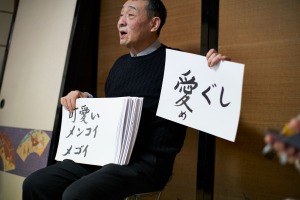 可愛い
メンコイ
メゴイ
愛ぐし
め